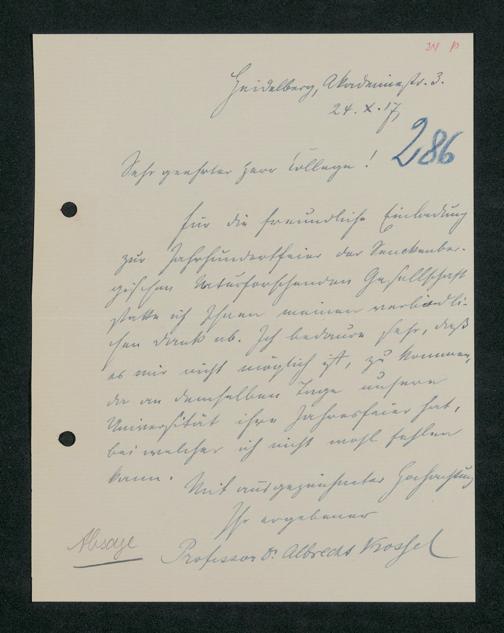 Heidelberg, Akademiestr. 3.
24. X. 17
286
Sehr geehrter Herr College!
Für die freundliche Einladung
zur Jahrhundertfeier der Senckenber-
gischen Naturforschenden Gesellschaft
statte ich Ihnen meinen verbindli-
chen Dank ab. Ich bedaure sehr, daß
es mir nicht möglich ist, zu kommen,
da an demselben Tage unsere
Universität ihre Jahresfeier hat,
bei welcher ich nicht wohl fehlen
kann.
Mit ausgezeichneter Hochachtung
Ihr ergebener
Professor Dr. Albrecht Kossel
Absage